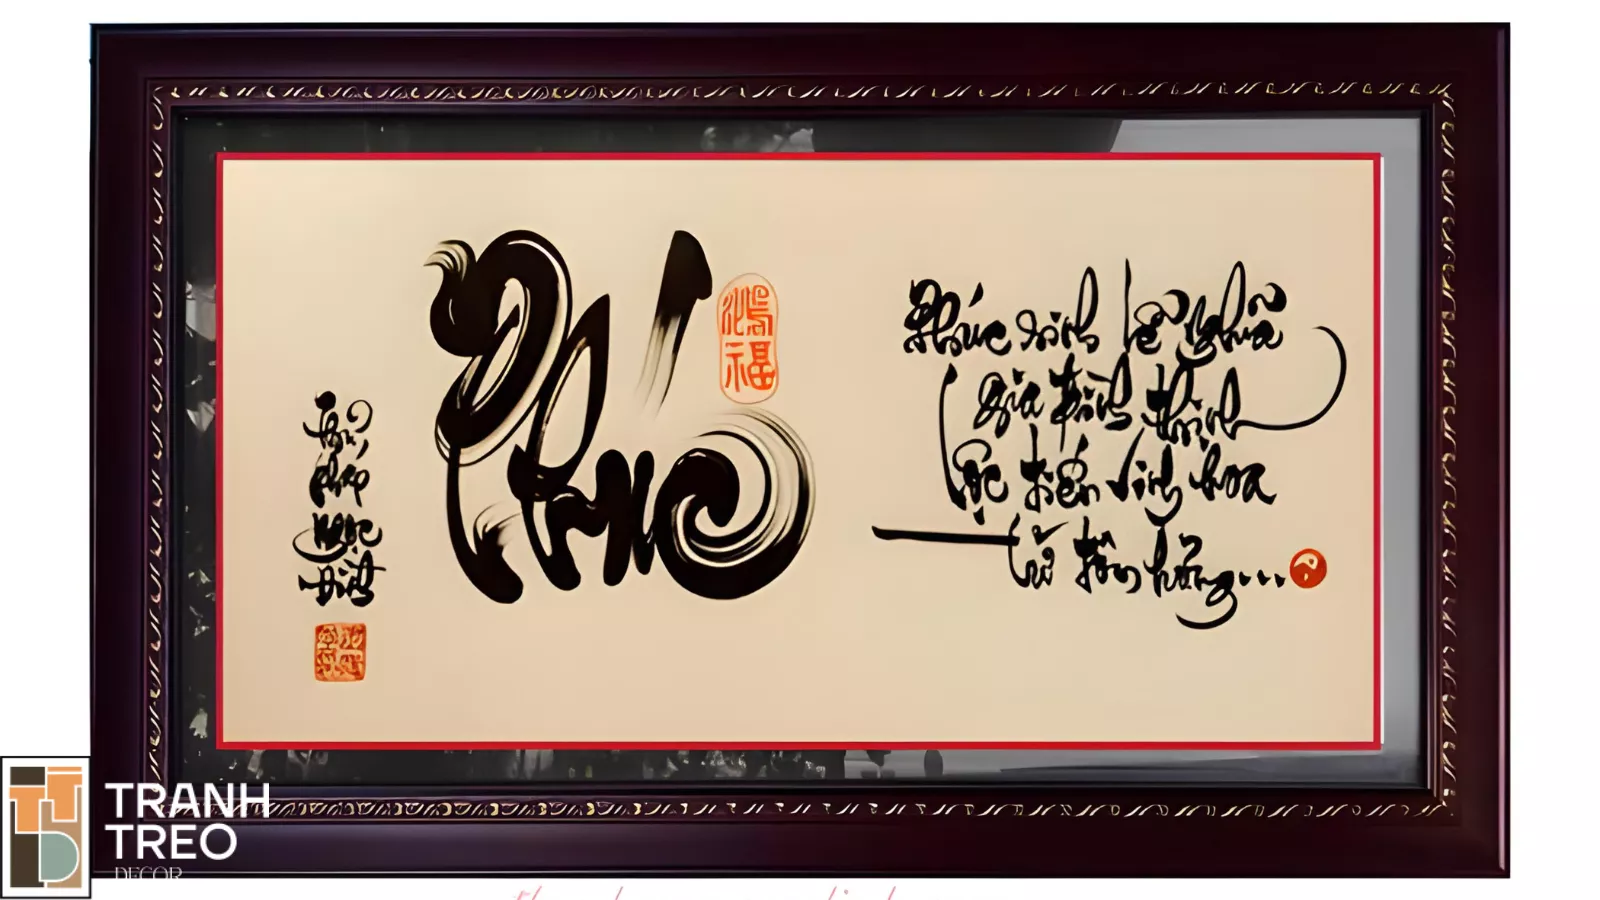 Phúc
鴻福
Phúc sinh lễ nghĩa
gia đình thịnh
Lộc tiến vinh hoa
tử tôn hưởng...
pháp
Ngọc
TRANH
TREO
DECOR